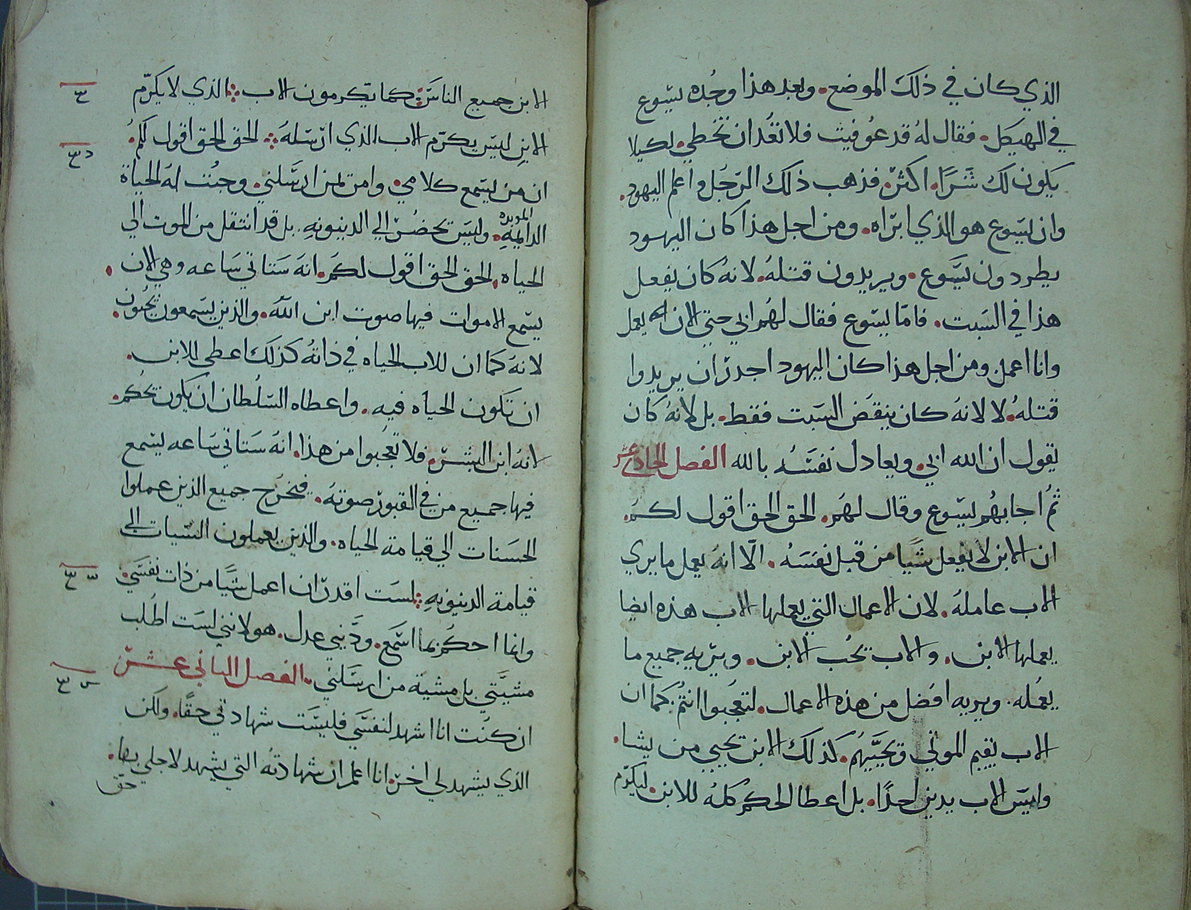 الذي كان في ذلك الموضع. وبعد هذا وجده يسوع
في الهيكل. فقال له قد عوفيت فلا تعد ان تخطي. لكيلا
يكون لك شرا. اكثر. فذهب ذلك الرجل واعلم اليهود.
وان يسوع هو الذي ابراه. ومن اجل هذا كان اليهود
يطردون يسوع. ويريدون قتله. لانه كان يفعل
هذا في السبت. فاما يسوع فقال لهم ابي حتي الان يعمل
وانا اعمل ومن اجل هذا كان اليهود اجدر ان يريدوا
قتله. لا لانه كان ينقض السبت فقط. بل لانه كان
يقول ان الله ابي. ويعادل نفسه بالله الفصل الحادي عشر
ثم اجابهم يسوع وقال لهم. الحق الحق اقول لكم.
ان الابن لا يفعل شيا من قبل نفسه. الا انه يعمل ما يري
الاب عامله. لان الاعمال التي يعملها الاب هذه ايضا
يعملها الابن. والاب يحب الابن. ويريه جميع ما
يعمله. ويريه افضل من هذه الاعمال. لتعجبوا انتم. كما ان
الاب يقيم الموتي ويحييهم. كذلك الابن يحيي من يشا.
وليس الاب يدين احدا. بل اعطا الحكم كله للابن. ليكرم
الابن جميع الناس كما تكرمون الاب الذي لا يكرم
الابن ليس يكرم الاب الذي ارسله الحق الحق اقول لكم.
ان من يسمع كلامي. وامن بمن ارسلني. وجبت له الحياة
الدايمة. المويده وليس يحضر الي الدينونه. بل قد انتقل من الموت الي
الحياه. الحق الحق اقول لكم. انه ستاتي ساعه وهي الان.
يسمع الاموات فيها صوت ابن الله. والذين يسمعون يحيون.
لانه كما ان للاب الحياه في ذاته كذلك اعطي للابن.
ان تكون الحياه فيه. واعطاه السلطان ان يكون يحكم.
لانه ابن البشر. فلا تعجبوا من هذا. انه ستاتي ساعه يسمع
فيها جميع من في القبور صوته. فيخرج جميع الذين عملوا
الحسنات الي قيامة الحياه. والذين يعملون السيات الي
قيامة الدينونه لست اقدر ان اعمل شيا من ذات نفسي.
وانما احكم بما اسمع. وديني عدل. هو لانني لست اطلب
مشيتي بل مشية من ارسلني. الفصل الثاني عشر
ان كنت انا اشهد لنفسي فليست شهادتي حقا. ولكن
الذي يشهد لي اخر. انا اعلم ان شهادته التي يشهد لاجلي بها.
حق